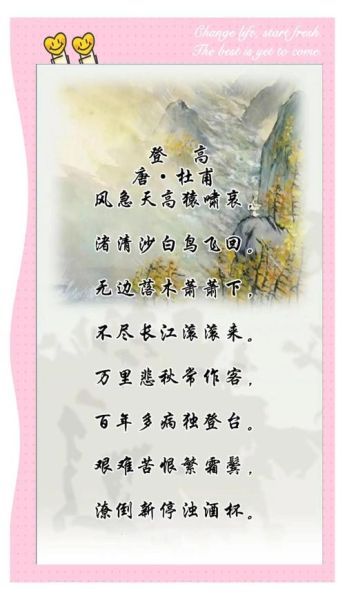 Change life, start fresh.
The best is yet to come.
登 高
唐·杜甫
风急天高猿啸哀，
渚清沙白鸟飞回。
无边落木萧萧下，
不尽长江滚滚来。
万里悲秋常作客，
百年多病独登台。
艰难苦恨繁霜鬓，
潦倒新停浊酒杯。